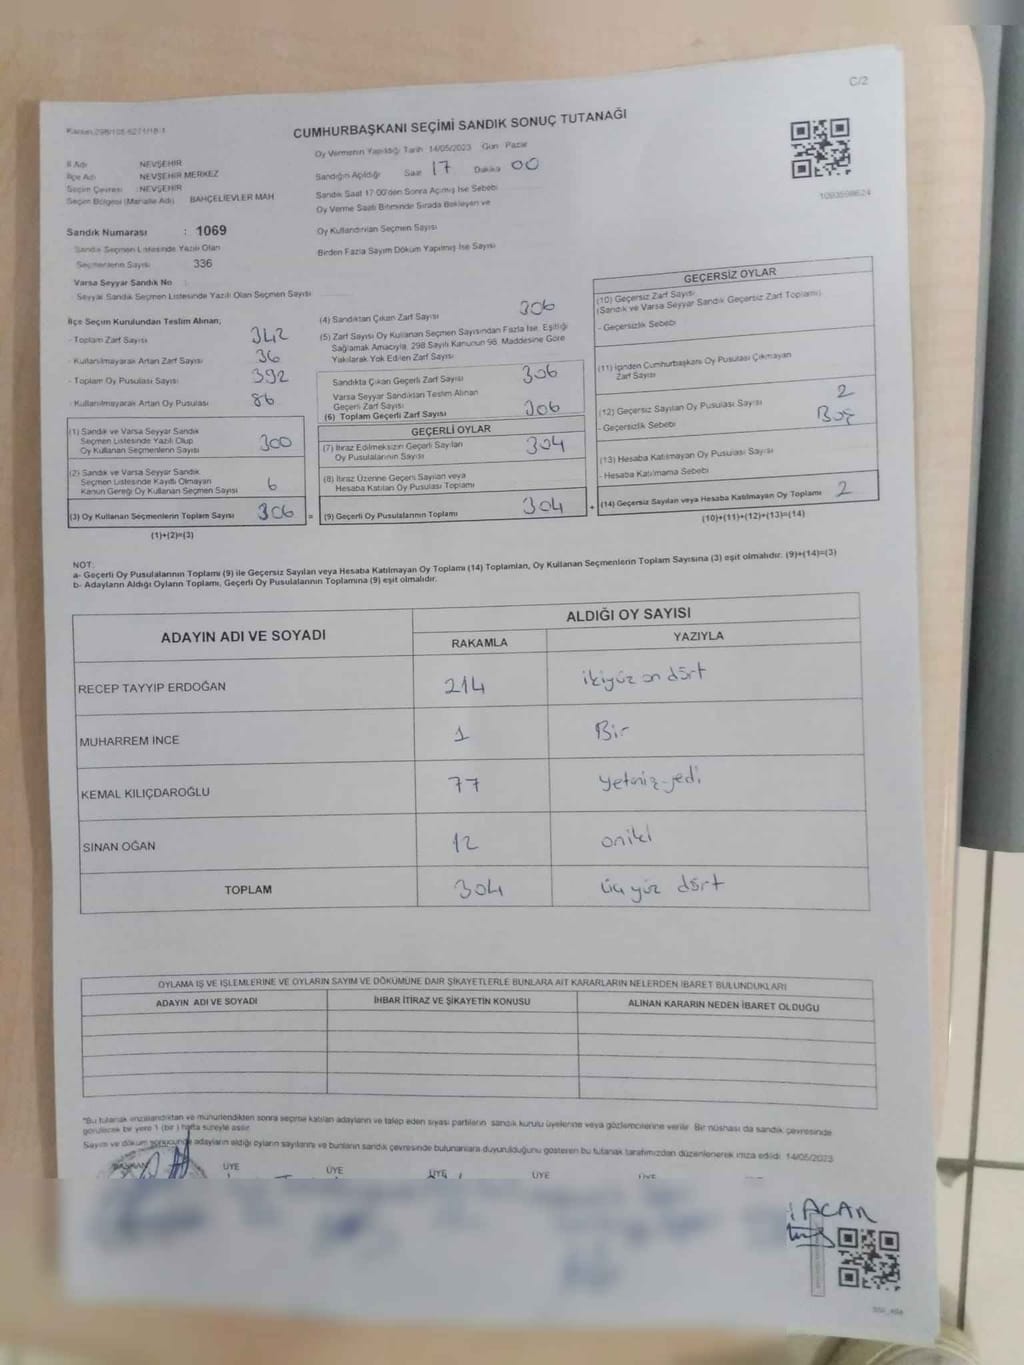 C/2
CUMHURBAŞKANI SEÇİMİ SANDIK SONUÇ TUTANAĞI
Oy Vermenin Yapıldığı Tarih 14/05/2023 Gün Pazar
Sandığın Açıldığı Saat 17 Dakika 00
Sandık Saat 17:00'den Sonra Açılmış İse Sebebi
Oy Verme Saati Bitiminde Sırada Bekleyen ve
Oy Kullandırılan Seçmen Sayısı
Birden Fazla Sayım Döküm Yapılmış İse Sayısı
İl Adı NEVŞEHİR
İlçe Adı NEVŞEHİR MERKEZ
Seçim Çevresi : NEVŞEHİR
Seçim Bölgesi (Mahalle Adı) BAHÇELİEVLER MAH
1093598624
Sandık Numarası : 1069
Sandık Seçmen Listesinde Yazılı Olan
Seçmenlerin Sayısı 336
Varsa Seyyar Sandık No :
- Seyyar Sandık Seçmen Listesinde Yazılı Olan Seçmen Sayısı
İlçe Seçim Kurulundan Teslim Alınan;
- Toplam Zarf Sayısı 342
- Kullanılmayarak Artan Zarf Sayısı 36
- Toplam Oy Pusulası Sayısı 392
- Kullanılmayarak Artan Oy Pusulası 86
(1) Sandık ve Varsa Seyyar Sandık
Seçmen Listesinde Yazılı Olup
Oy Kullanan Seçmenlerin Sayısı 300
(2) Sandık ve Varsa Seyyar Sandık
Seçmen Listesinde Kayıtlı Olmayan
Kanun Gereği Oy Kullanan Seçmen Sayısı 6
(3) Oy Kullanan Seçmenlerin Toplam Sayısı 306 =
(1)+(2)=(3)
(4) Sandıktan Çıkan Zarf Sayısı 306
(5) Zarf Sayısı Oy Kullanan Seçmen Sayısından Fazla İse, Eşitliği
Sağlamak Amacıyla, 298 Sayılı Kanunun 98. Maddesine Göre
Yakılarak Yok Edilen Zarf Sayısı
Sandıkta Çıkan Geçerli Zarf Sayısı 306
Varsa Seyyar Sandıktan Teslim Alınan
Geçerli Zarf Sayısı
(6) Toplam Geçerli Zarf Sayısı 306
GEÇERLİ OYLAR
(7) İtiraz Edilmeksizin Geçerli Sayılan
Oy Pusulalarının Sayısı 304
(8) İtiraz Üzerine Geçerli Sayılan veya
Hesaba Katılan Oy Pusulası Toplamı
(9) Geçerli Oy Pusulalarının Toplamı 304 +
GEÇERSİZ OYLAR
(10) Geçersiz Zarf Sayısı
(Sandık ve Varsa Seyyar Sandık Geçersiz Zarf Toplamı)
- Geçersizlik Sebebi
(11) İçinden Cumhurbaşkanı Oy Pusulası Çıkmayan
Zarf Sayısı
(12) Geçersiz Sayılan Oy Pusulası Sayısı 2
- Geçersizlik Sebebi Boş
(13) Hesaba Katılmayan Oy Pusulası Sayısı
- Hesaba Katılmama Sebebi
(14) Geçersiz Sayılan veya Hesaba Katılmayan Oy Toplamı 2
(10)+(11)+(12)+(13)=(14)
NOT:
a- Geçerli Oy Pusulalarının Toplamı (9) ile Geçersiz Sayılan veya Hesaba Katılmayan Oy Toplamı (14) Toplamları, Oy Kullanan Seçmenlerin Toplam Sayısına (3) eşit olmalıdır. (9)+(14)=(3)
b- Adayların Aldığı Oyların Toplamı, Geçerli Oy Pusulalarının Toplamına (9) eşit olmalıdır.
ADAYIN ADI VE SOYADI ALDIĞI OY SAYISI
RAKAMLA YAZIYLA
RECEP TAYYİP ERDOĞAN 214 ikiyüz on dört
MUHARREM İNCE 1 Bir
KEMAL KILIÇDAROĞLU 77 yetmiz-yedi
SİNAN OĞAN 12 oniki
TOPLAM 304 üç yüz dört
OYLAMA İŞ VE İŞLEMLERİNE VE OYLARIN SAYIM VE DÖKÜMÜNE DAİR ŞİKAYETLERLE BUNLARA AİT KARARLARIN NELERDEN İBARET BULUNDUKLARI
ADAYIN ADI VE SOYADI İHBAR İTİRAZ VE ŞİKAYETİN KONUSU ALINAN KARARIN NEDEN İBARET OLDUĞU
*Bu tutanak imzalandıktan ve mühürlendikten sonra seçime katılan adayların ve talep eden siyasi partilerin sandık kurulu üyelerine veya gözlemcilerine verilir. Bir nüshası da sandık çevresinde
görülecek bir yere 1 (bir ) hafta süreyle asılır.
Sayım ve döküm sonucunda adayların aldığı oyların sayılarını ve bunların sandık çevresinde bulunanlara duyurulduğunu gösteren bu tutanak tarafımızdan düzenlenerek imza edildi. 14/05/2023
BAŞKAN ÜYE ÜYE ÜYE ÜYE ÜYE
İ ACAR